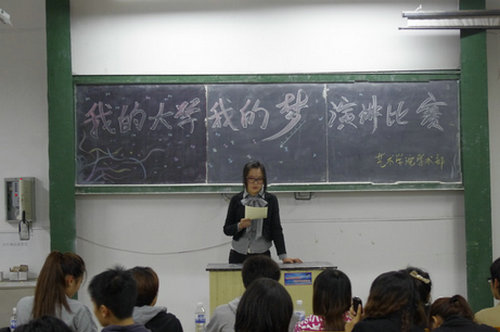 我的大学 我的梦 演讲比赛
艺术学院学术部